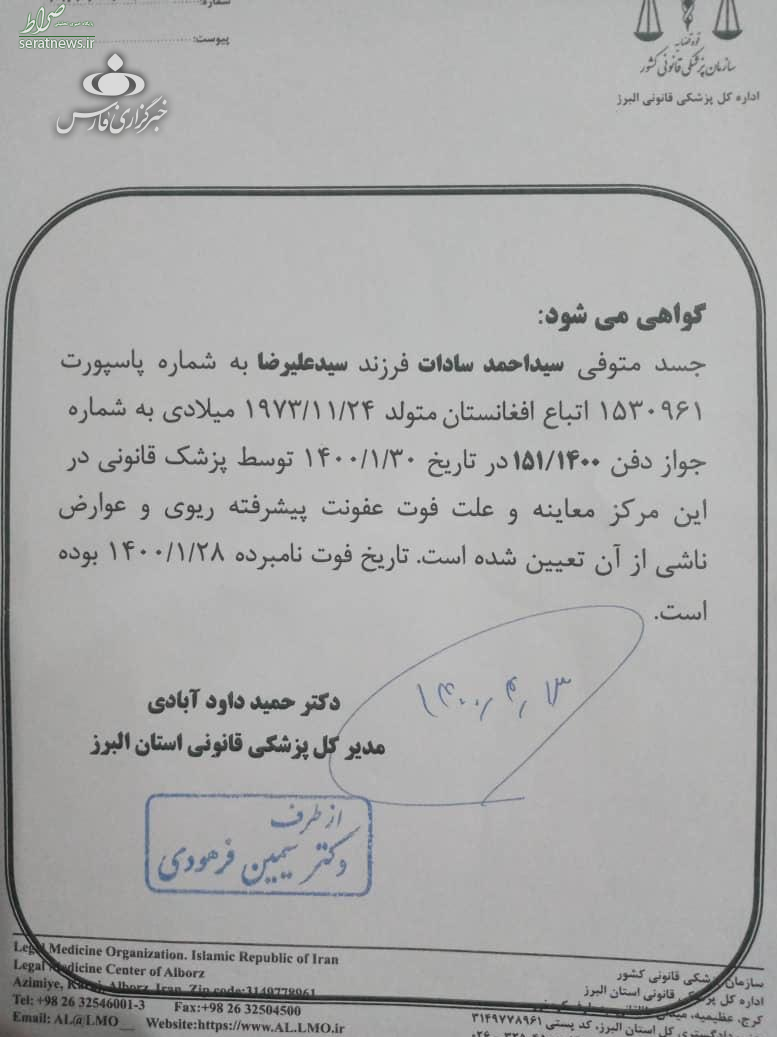 شماره:
پیوست:
صراط
seratnews.ir
خبرگزاری فارس
قوه قضاییه
سازمان پزشکی قانونی کشور
اداره کل پزشکی قانونی البرز
گواهی می شود:
جسد متوفی سیداحمد سادات فرزند سیدعلیرضا به شماره پاسپورت
۱۵۳۰۹۶۱ اتباع افغانستان متولد ۱۹۷۳/۱۱/۲۴ میلادی به شماره
جواز دفن ۱۵۱/۱۴۰۰ در تاریخ ۱۴۰۰/۱/۳۰ توسط پزشک قانونی در
این مرکز معاینه و علت فوت عفونت پیشرفته ریوی و عوارض
ناشی از آن تعیین شده است. تاریخ فوت نامبرده ۱۴۰۰/۱/۲۸ بوده
است.
دکتر حمید داود آبادی
مدیر کل پزشکی قانونی استان البرز
از طرف
دکتر سیمین فرهودی
Legal Medicine Organization. Islamic Republic of Iran
Legal Medicine Center of Alborz
Azimiye, Karaj, Alborz, Iran, Zip code:3149778961
Tel: +98 26 32546001-3 Fax:+98 26 32504500
Email: AL@LMO Website:https://www.AL.LMO.ir
سازمان پزشکی قانونی کشور
اداره کل پزشکی قانونی استان البرز
کرج، عظیمیه، میدان
دادگستری کل استان البرز، کد پستی ۳۱۴۹۷۷۸۹۶۱